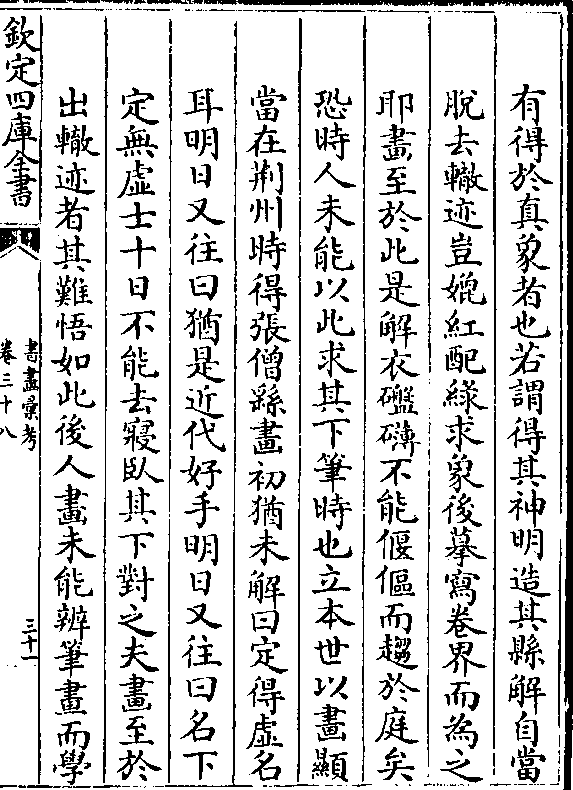 有得於真象者也若謂得其神明造其縣解自當
脫去轍迹豈媲紅配綠求象後摹寫卷界而為之
耶畫至於此是解衣礛礴不能傴僂而趨於庭矣
恐時人未能以此求其下筆時也立本世以畫顯
當在荆州時得張僧繇畫初猶未解曰定得虛名
耳明日又往曰猶是近代好手明日又往曰名下
定無虛士十日不能去寢臥其下對之夫畫至於
出轍迹者其難悟如此後人畫未能辨筆畫而學
欽定四庫全書
書畫彙考
卷三十八
三十一